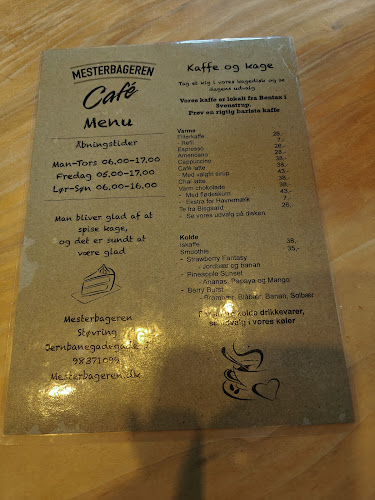 MESTERBAGEREN
Café
Menu
Åbningstider
Man-Tors 06.00-17.00
Fredag 05.00-17.00
Lør-Søn 06.00-16.00
Man bliver glad af at
spise kage,
og det er sundt at
være glad
Mesterbageren
Støvring
Jernbanegade
98371099
Mesterbageren.dk
Kaffe og kage
Tag et kig i vores kagedisk og se
dagens udvalg
Vores kaffe er lokalt fra Bentax i
Svenstrup.
Prøv en rigtig barista kaffe
Varme
Filterkaffe 28,-
- Refil 7,-
Espresso 28,-
Americano 28,-
Cappuccino 38,-
Café latte 38,-
- Med valgfri sirup 43,-
Chai latte 38,-
Varm chokolade 38,-
- Med flødeskum 43,-
- Ekstra for Havremælk 7,-
Te fra Bisgaard 28,-
- Se vores udvalg på disken
Kolde
Iskaffe 38,-
Smoothie 38,-
- Strawberry Fantasy
- Jordbær og banan
- Pineapple Sunset
- Ananas, Papaya og Mango
- Berry Burst
- Brombær, Blåbær, Banan, Solbær
kolde drikkevarer,
se udvalg i vores køler